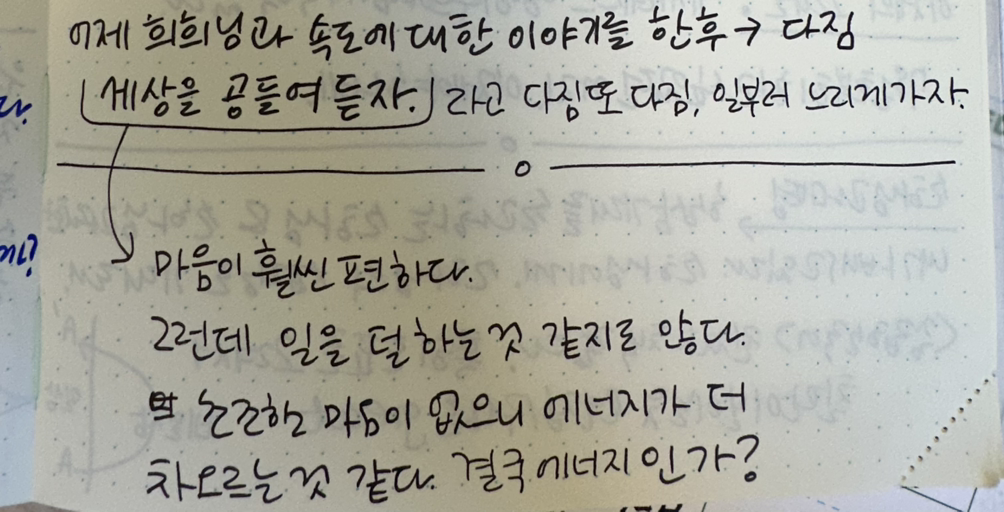 어제 희희님과 속도에 대한 이야기를 한후 → 다짐
세상을 공들여 듣자. 라고 다짐 또 다짐, 일부러 느리게가자.
마음이 훨씬 편하다.
그런데 일을 덜 하는 것 같지도 않다.
초조한 마음이 없으니 에너지가 더
차오르는 것 같다. 결국 에너지인가?